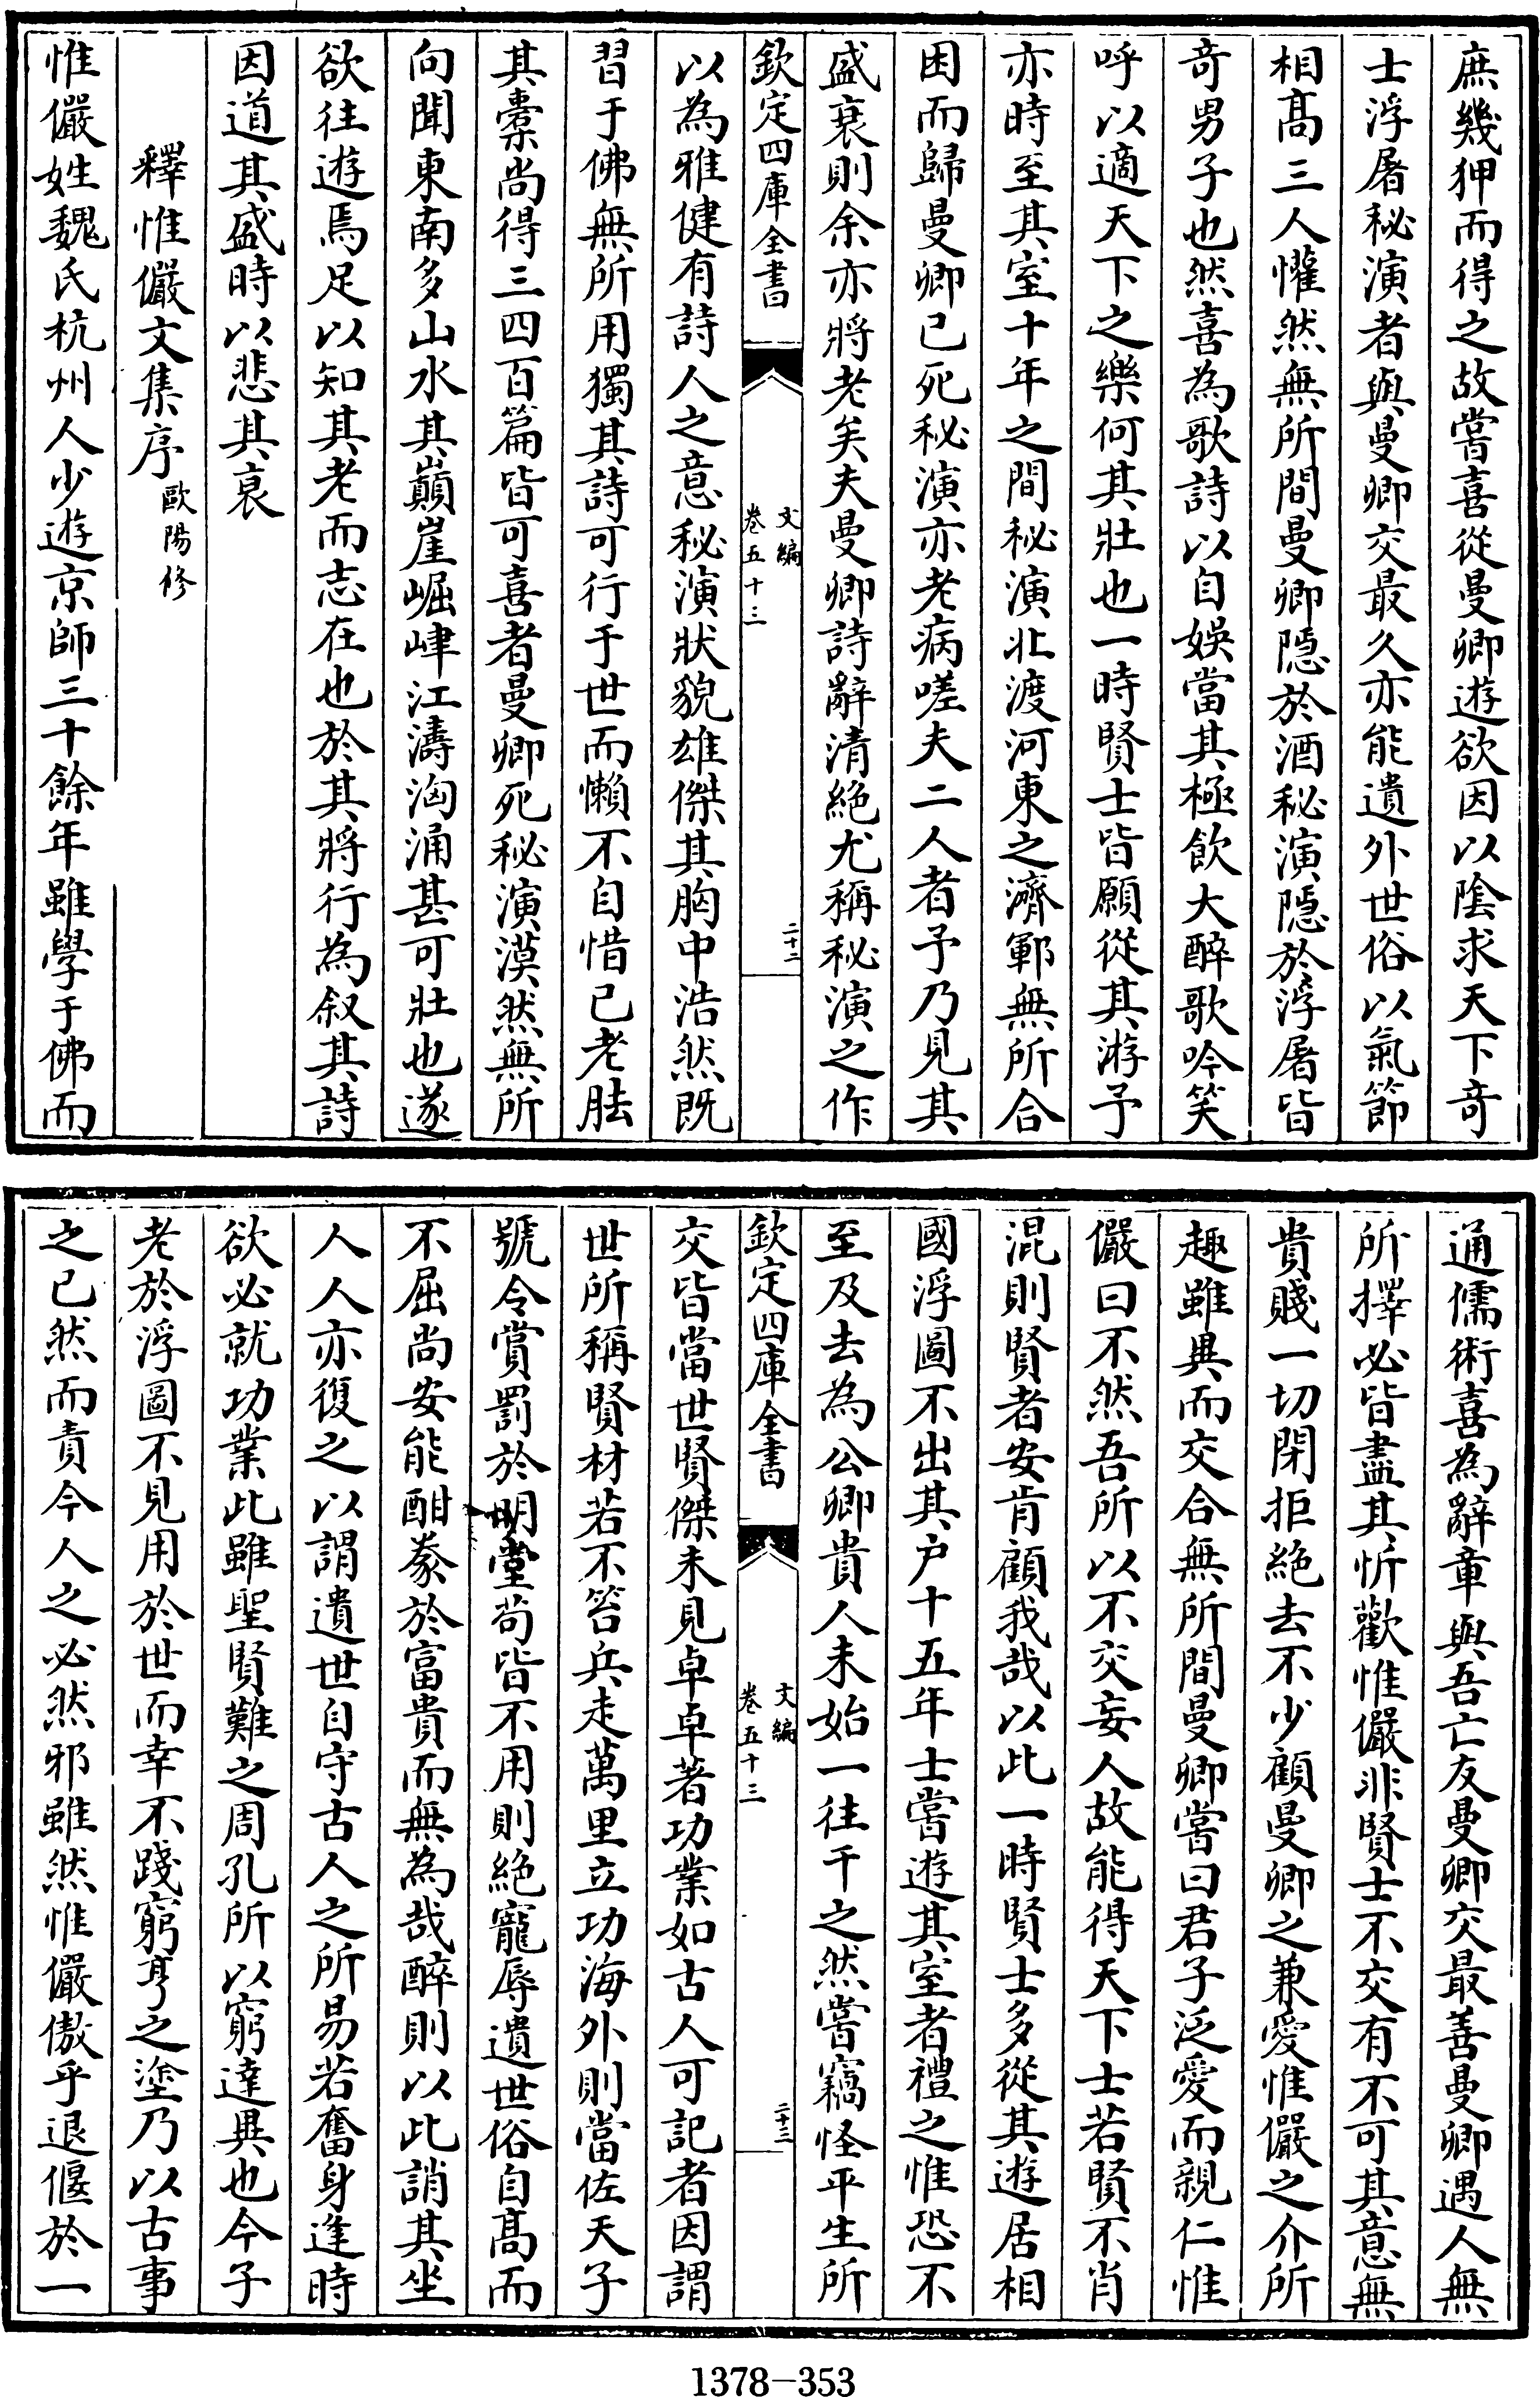 庶幾狎而得之故嘗喜從曼卿遊欲因以陰求天下竒
士浮屠秘演者與曼卿交最久亦能遺外世俗以氣節
相髙三人懽然無所間曼卿隠於酒秘演隠於浮屠皆
竒男子也然喜為歌詩以自娛當其極飲大醉歌吟笑
呼以適天下之樂何其壯也一時賢士皆願從其游予
亦時至其室十年之間秘演北渡河東之濟鄆無所合
困而歸曼卿已死秘演亦老病嗟夫二人者予乃見其
盛衰則余亦將老矣夫曼卿詩辭清絶尤稱秘演之作
欽定四庫全書
文編
卷五十三
二十二
以為雅健有詩人之意秘演狀貌雄傑其胸中浩然既
習于佛無所用獨其詩可行于世而懶不自惜已老胠
其橐尚得三四百篇皆可喜者曼卿死秘演漠然無所
向聞東南多山水其巔崖崛峍江濤洶涌甚可壯也遂
欲往遊焉足以知其老而志在也於其將行為叙其詩
因道其盛時以悲其衰
釋惟儼文集序 歐陽修
惟儼姓魏氏杭州人少遊京師三十餘年雖學于佛而
通儒術喜為辭章與吾亡友曼卿交最善曼卿遇人無
所擇必皆盡其忻歡惟儼非賢士不交有不可其意無
貴賤一切閉拒絶去不少顧曼卿之兼愛惟儼之介所
趣雖異而交合無所間曼卿嘗曰君子泛愛而親仁惟
儼曰不然吾所以不交妄人故能得天下士若賢不肖
混則賢者安肯顧我哉以此一時賢士多從其遊居相
國浮圖不出其户十五年士嘗遊其室者禮之惟恐不
至及去為公卿貴人未始一往干之然嘗竊怪平生所
欽定四庫全書
文編
卷五十三
二十三
交皆當世賢傑未見卓卓著功業如古人可記者因謂
世所稱賢材若不笞兵走萬里立功海外則當佐天子
號令賞罰於明堂茍皆不用則絶寵辱遺世俗自髙而
不屈尚安能酣豢於富貴而無為哉醉則以此誚其坐
人人亦復之以謂遺世自守古人之所易若奮身逢時
欲必就功業此雖聖賢難之周孔所以窮達異也今子
老於浮圖不見用於世而幸不踐窮亨之塗乃以古事
之已然而責今人之必然邪雖然惟儼傲乎退偃於一
1378-353